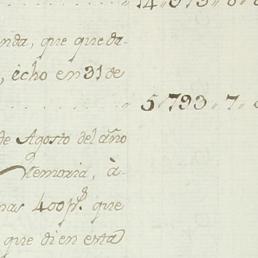 14 "
nda, que queda-
, echo en 31 de
5"793"7"
de Agosto del año
Memoria, à-
nas 400 p.s que
que di en esta